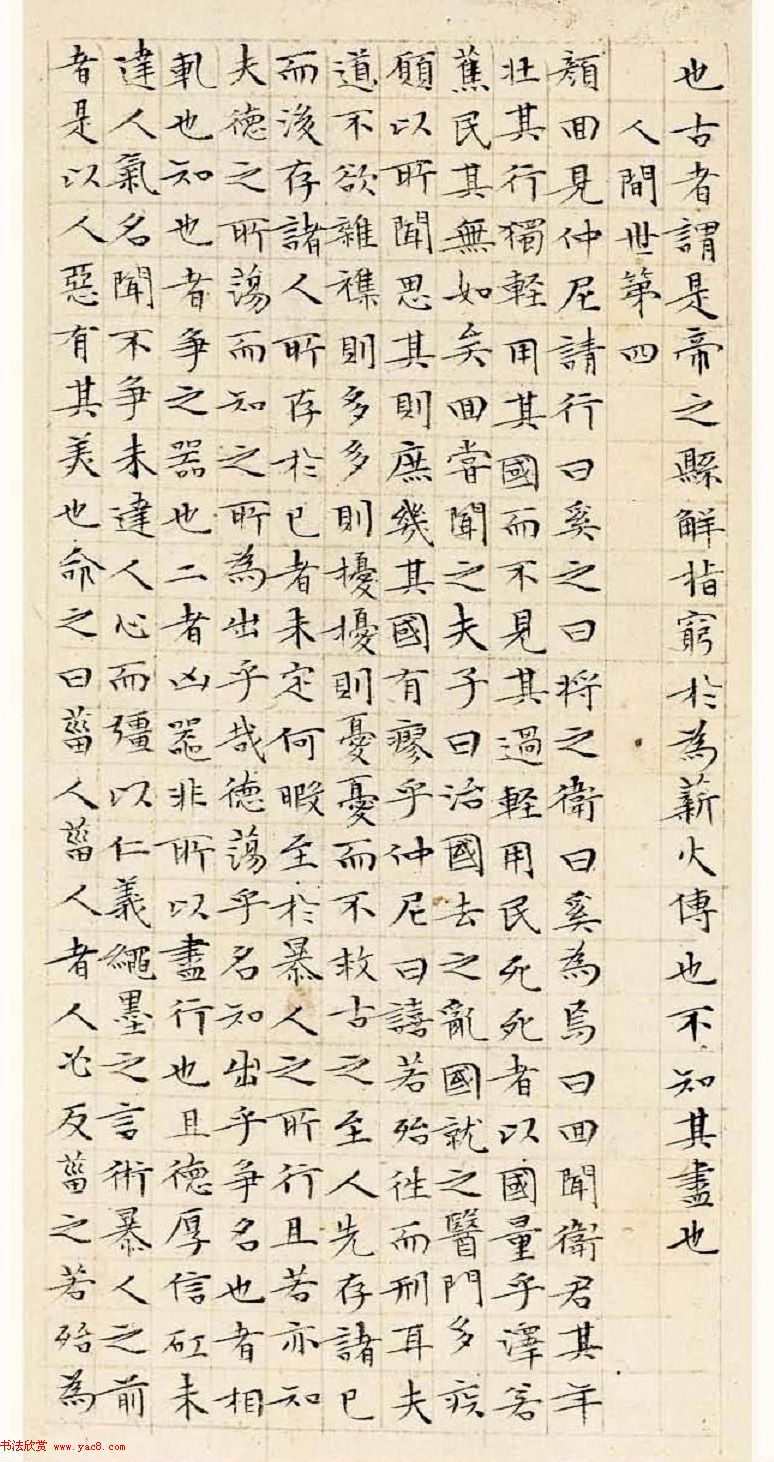 也古者謂是帝之縣解指窮於為薪火傳也不知其盡也
人間世第四
顏回見仲尼請行曰奚之曰將之衛曰奚為焉曰回聞衛君其年
壯其行獨輕用其國而不見其過輕用民死死者以國量乎澤若
蕉民其無如矣回嘗聞之夫子曰治國去之亂國就之醫門多疾
願以所聞思其則庶幾其國有瘳乎仲尼曰譆若殆往而刑耳夫
道不欲雜雜則多多則擾擾則憂憂而不救古之至人先存諸己
而後存諸人所存於己者未定何暇至於暴人之所行且若亦知
夫德之所蕩而知之所為出乎哉德蕩乎名知出乎爭名也者相
軋也知也者爭之器也二者凶器非所以盡行也且德厚信矼未
達人氣名聞不爭未達人心而彊以仁義繩墨之言術暴人之前
者是以人惡有其美也命之曰菑人菑人者人必反菑之若殆為
书法欣赏 www.yac8.com